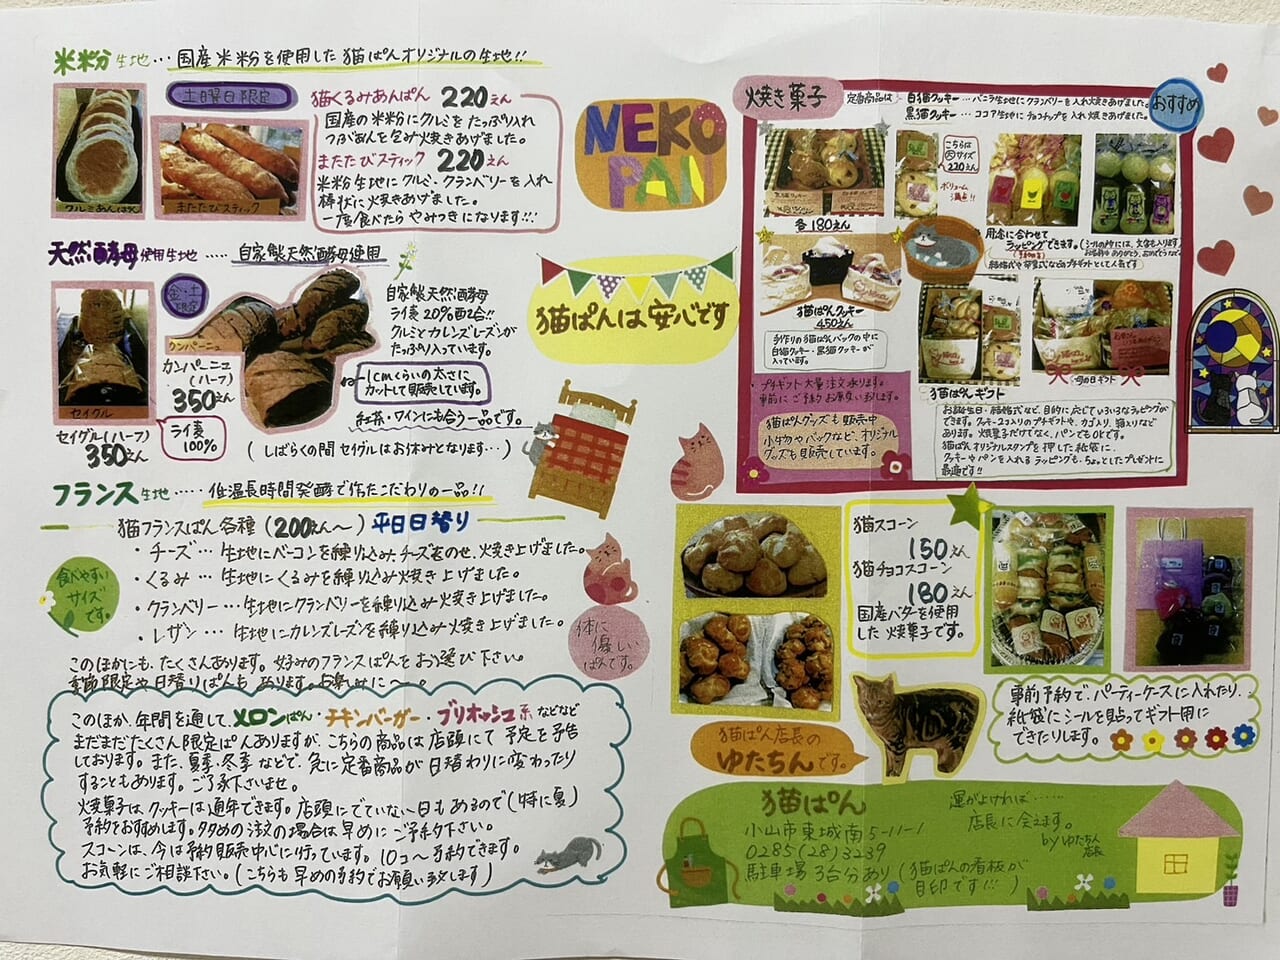 米粉生地…国産米粉を使用した猫ぱんオリジナルの生地!!
土曜日限定
クルミあんぱん
またたびスティック
猫くるみあんぱん 220えん
国産の米粉にクルミをたっぷり入れ
つぶあんを包み焼きあげました。
またたびスティック 220えん
米粉生地にクルミ・クランベリーを入れ
棒状に焼きあげました。
一度食べたらやみつきになります!!!
天然酵母使用生地……自家製天然酵母使用
金・土限定
セイグル
セイグル(ハーフ)
350えん
カンパーニュ
カンパーニュ
(ハーフ)
350えん
ライ麦
100%
自家製天然酵母
ライ麦20%配合!!
クルミとカレンズレーズンが
たっぷり入っています。
1cmくらいの太さに
カットして販売しています。
紅茶・ワインにも合う一品です。
(しばらくの間セイグルはお休みとなります…)
フランス生地……低温長時間発酵で作たこだわりの一品!!
猫フランスぱん各種(200えん〜)平日日替り
・チーズ…生地にベーコンを練り込みチーズをのせ、焼き上げました。
・くるみ…生地にくるみを練り込み焼き上げました。
・クランベリー…生地にクランベリーを練り込み焼き上げました。
・レザン…生地にカレンズレーズンを練り込み焼き上げました。
食べやすい
サイズ
です。
体に
優しい
ぱんです。
このほかにも、たくさんあります。お好みのフランスぱんをお選び下さい。
季節限定や日替りぱんもあります。お楽しみに〜。
このほか、年間を通して、メロンぱん・チキンバーガー・ブリオッシュ系などなど
まだまだたくさん限定ぱんありますが、こちらの商品は店頭にて予定を予告
しております。また、夏季・冬季などで、急に定番商品が日替わりに変わったり
することもあります。ご了承下さいませ。
焼菓子は、クッキーは通年できます。店頭にでていない日もあるので(特に夏)
予約をおすすめします。多めの注文の場合は早めにご予約下さい。
スコーンは、今は予約販売中心に行っています。10コ〜予約できます。
お気軽にご相談下さい。(こちらも早めの予約でお願い致します)
NEKO
PAN
猫ぱんは安心です
焼き菓子
定番商品は
白猫クッキー…バニラ生地にクランベリーを入れ焼きあげました。
黒猫クッキー…ココア生地にチョコチップを入れ焼きあげました。
おすすめ
各180えん
こちらは
大サイズ
220えん
ボリューム
満点!!
用途に合わせて
ラッピングできます。
結婚式や卒業式などのプチギフトとして人気です
猫ぱんクッキー
450えん
手作りの猫ぱんバックの中に
白猫クッキー・黒猫クッキーが
入っています。
プチギフト大量注文承ります。
事前にご予約お願い致します。
猫ぱんグッズも販売中
小物やバックなど、オリジナル
グッズも販売しています。
猫ぱんギフト
母の日ギフト
お誕生日・結婚式など、目的に応じていろいろなラッピングが
できます。クッキー2コ入りのプチギフトや、カゴ入り、箱入りなど
あります。焼菓子だけでなく、パンでもOKです。
猫ぱんオリジナルスタンプを押した紙袋に、
クッキーやパンを入れるラッピングも、ちょっとしたプレゼントに
最適です!!
猫スコーン
150えん
猫チョコスコーン
180えん
国産バターを使用
した焼菓子です。
猫ぱん店長の
ゆたちんです。
事前予約で、パーティーケースに入れたり、
紙袋にシールを貼ってギフト用に
できたりします。
猫ぱん
小山市東城南5-11-1
0285(28)3239
駐車場3台分あり(猫ぱんの看板が
目印です!!!)
運がよければ……
店長に会えます。
byゆたちん
店長